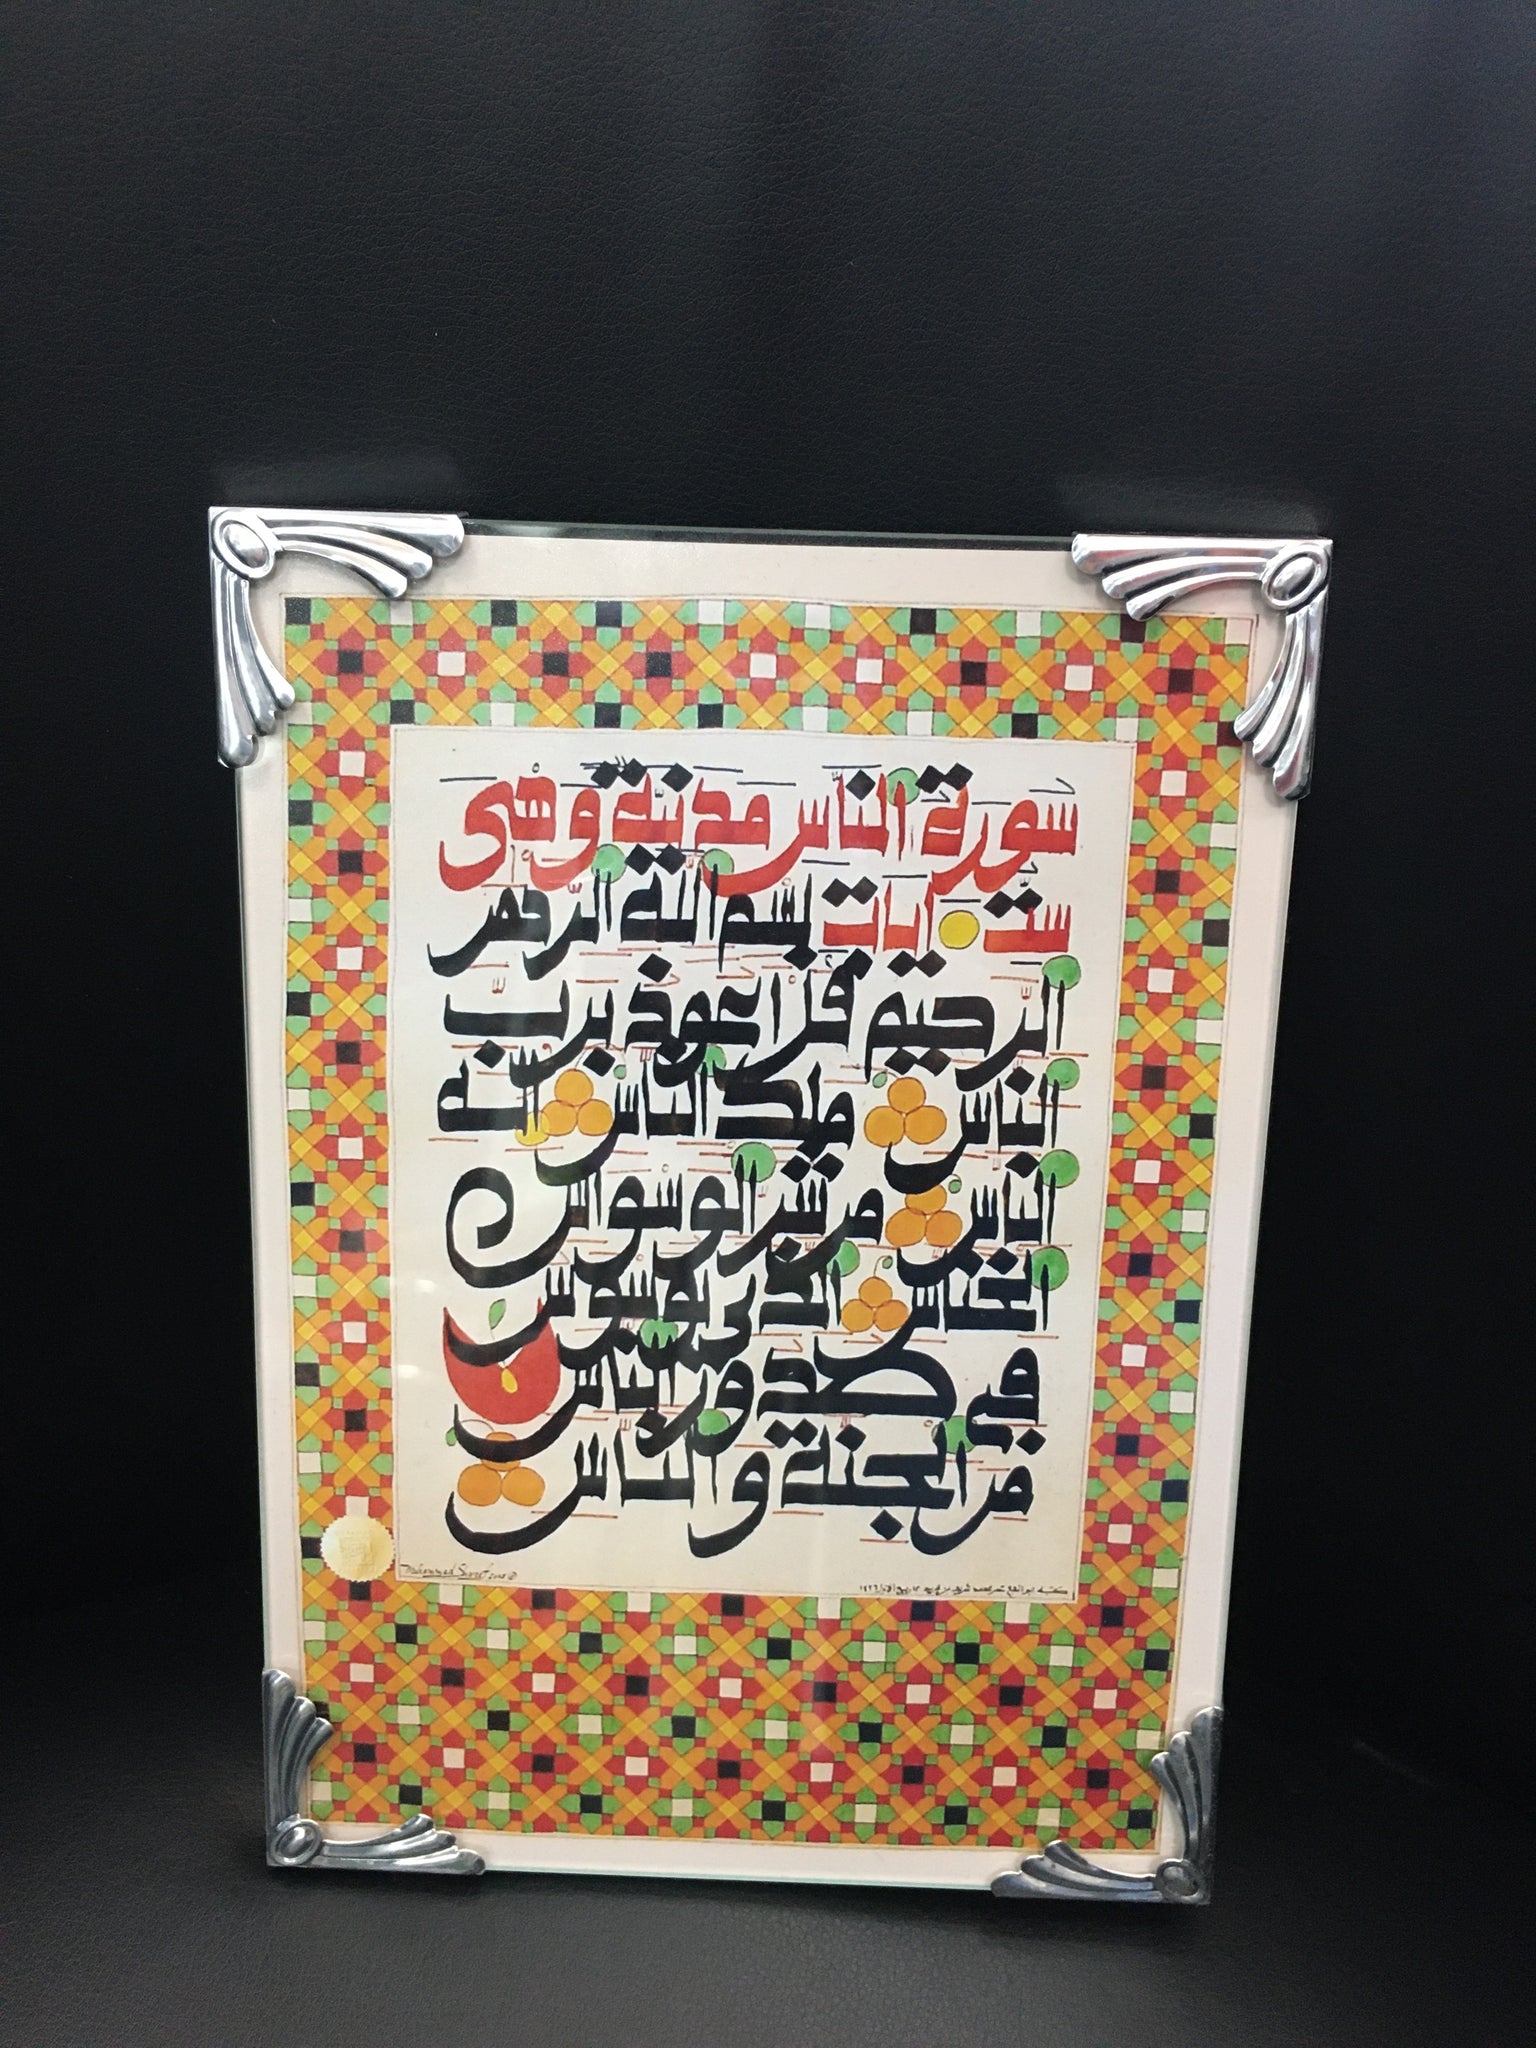 سُورَةُ النَّاسِ مَدَنِيَّةٌ وَهْيَ
سِتُّ ءَايَاتٍ بِسْمِ اللَّهِ الرَّحْمَنِ
الرَّحِيمِ قُلْ أَعُوذُ بِرَبِّ
النَّاسِ مَلِكِ النَّاسِ إِلَهِ
النَّاسِ مِن شَرِّ الْوَسْوَاسِ
الْخَنَّاسِ الَّذِي يُوَسْوِسُ
فِي صُدُورِ النَّاسِ
مِنَ الْجِنَّةِ وَالنَّاسِ
Mohammed
كتبه